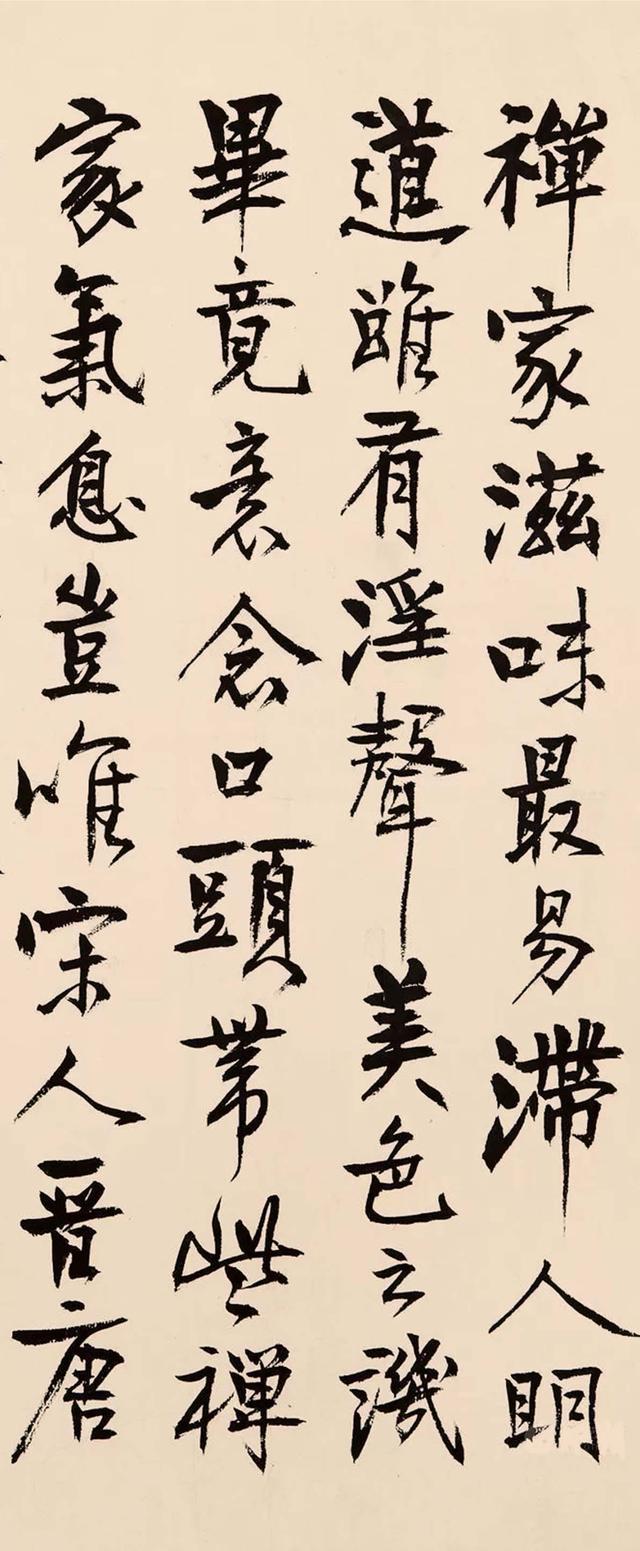 禪家滋味最易滯人明
道雖有淫聲美色之譏
畢竟意念口頭帶些禪
家氣息豈唯宋人晋唐